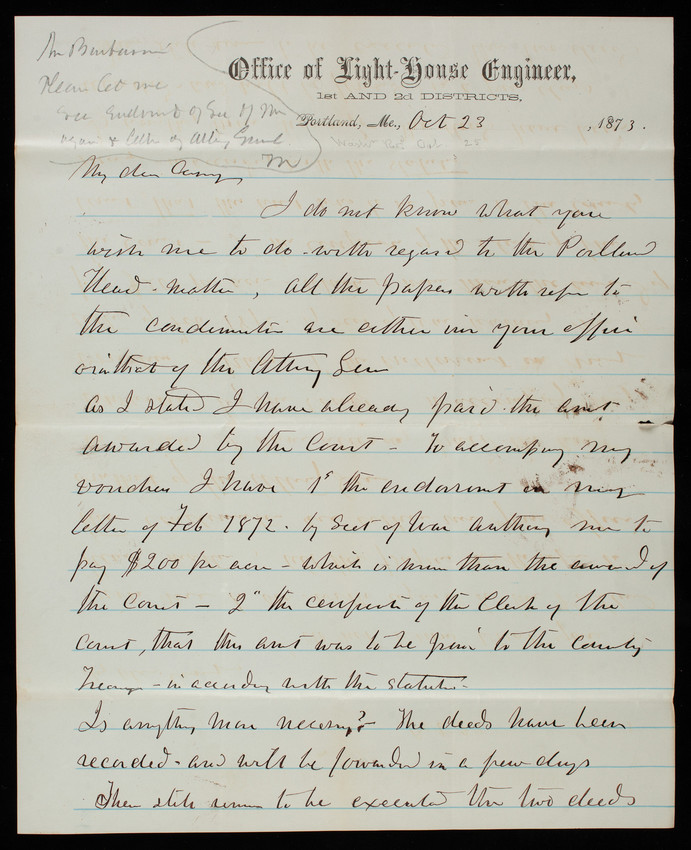 Please let me
see Endorsmt of Sec of
& letter of Atty Genl
M
Office of Light-House Engineer,
1st AND 2d DISTRICTS,
Portland, Me., Oct 23, 1873.
My dear Casey,
I do not know what you
wish me to do - with regard to the Portland
Head - matter, all the papers with refer to
the condemnation are either in your office
or in that of the Attorney Gen
As I stated I have already paid the amt
awarded by the Court - To accompany my
vouchers I have 1st the endorsement on my
letter of Feb 1872 - by Sect of War authorizing me to
pay $200 per acre - which is more than the award of
the Court - 2" the certificate of the Clerk of the
Court, that this amt was to be paid to the County
Treasurer - in accordance with the statute -
Is anything more necessary? - The deeds have been
recorded - and will be forwarded in a few days
There still remain to be executed the two deeds